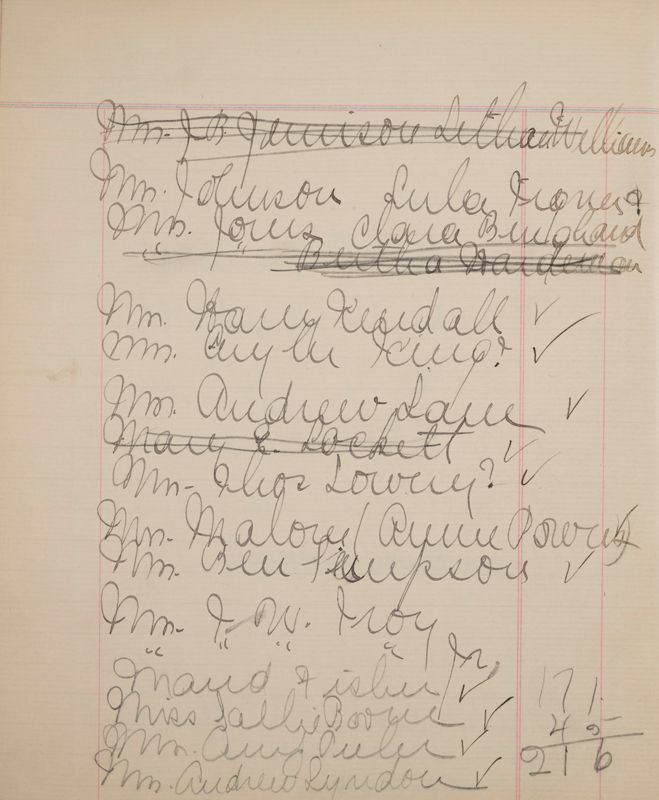 Mrs. J. B. Jemison Williams
Mrs. Johnson Lula
Mrs. Jones Clara
" " Bertha Hardeman
Mrs. Harry Kendall ✓
Mrs. King? ✓
Mrs. Andrew Lane ✓
Mary E. Lockett ✓
Mrs. Thos Lowery? ✓
Mrs. Malone (Annie Powers) ✓
Mrs. Ben Simpson ✓
Mrs. J. W. Troy
" " " " Jr.
Maud Fisher ✓ 171
Miss Sallie Boone ✓ 45
Mrs. ✓ 216
Mrs. Andrew Lyndon ✓